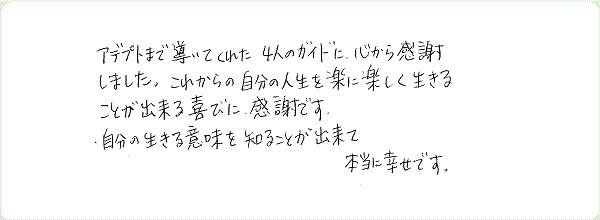 アデプトまで導いてくれた 4人のガイドに、心から感謝
しました。これからの自分の人生を楽に楽しく生きる
ことが出来る喜びに、感謝です。
・自分の生きる意味を知ることが出来て
本当に幸せです。